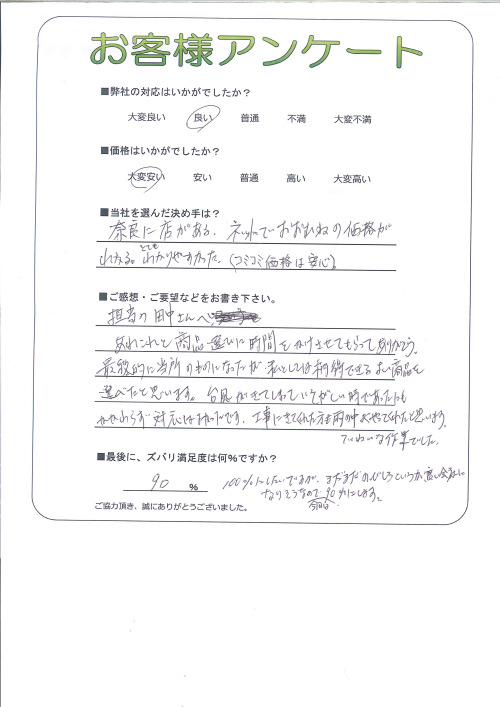 お客様アンケート
■弊社の対応はいかがでしたか？
大変良い 良い 普通 不満 大変不満
■価格はいかがでしたか？
大変安い 安い 普通 高い 大変高い
■当社を選んだ決め手は？
奈良に店がある。ネットでおおむねの価格が
わかる。とてもわかりやすかった。(コミコミ価格は安心)
■ご感想・ご要望などをお書き下さい。
担当の田中さんへ
あれこれと商品選びに時間をかけさせてもらってありがとう。
最終的に当所のものになったが私としては納得できるよい商品を
選べたと思います。台風がきていそがしい時であったにも
かかわらず対応は です。工事にきてくれた方も雨の中よくやってくれたと思います。
ていねいな作業でした。
■最後に、ズバリ満足度は何％ですか？
90 % 100%にしたいですが、まだまだのびしろというか良い会社に
なりそうなので90%にします。
今回は
ご協力頂き、誠にありがとうございました。